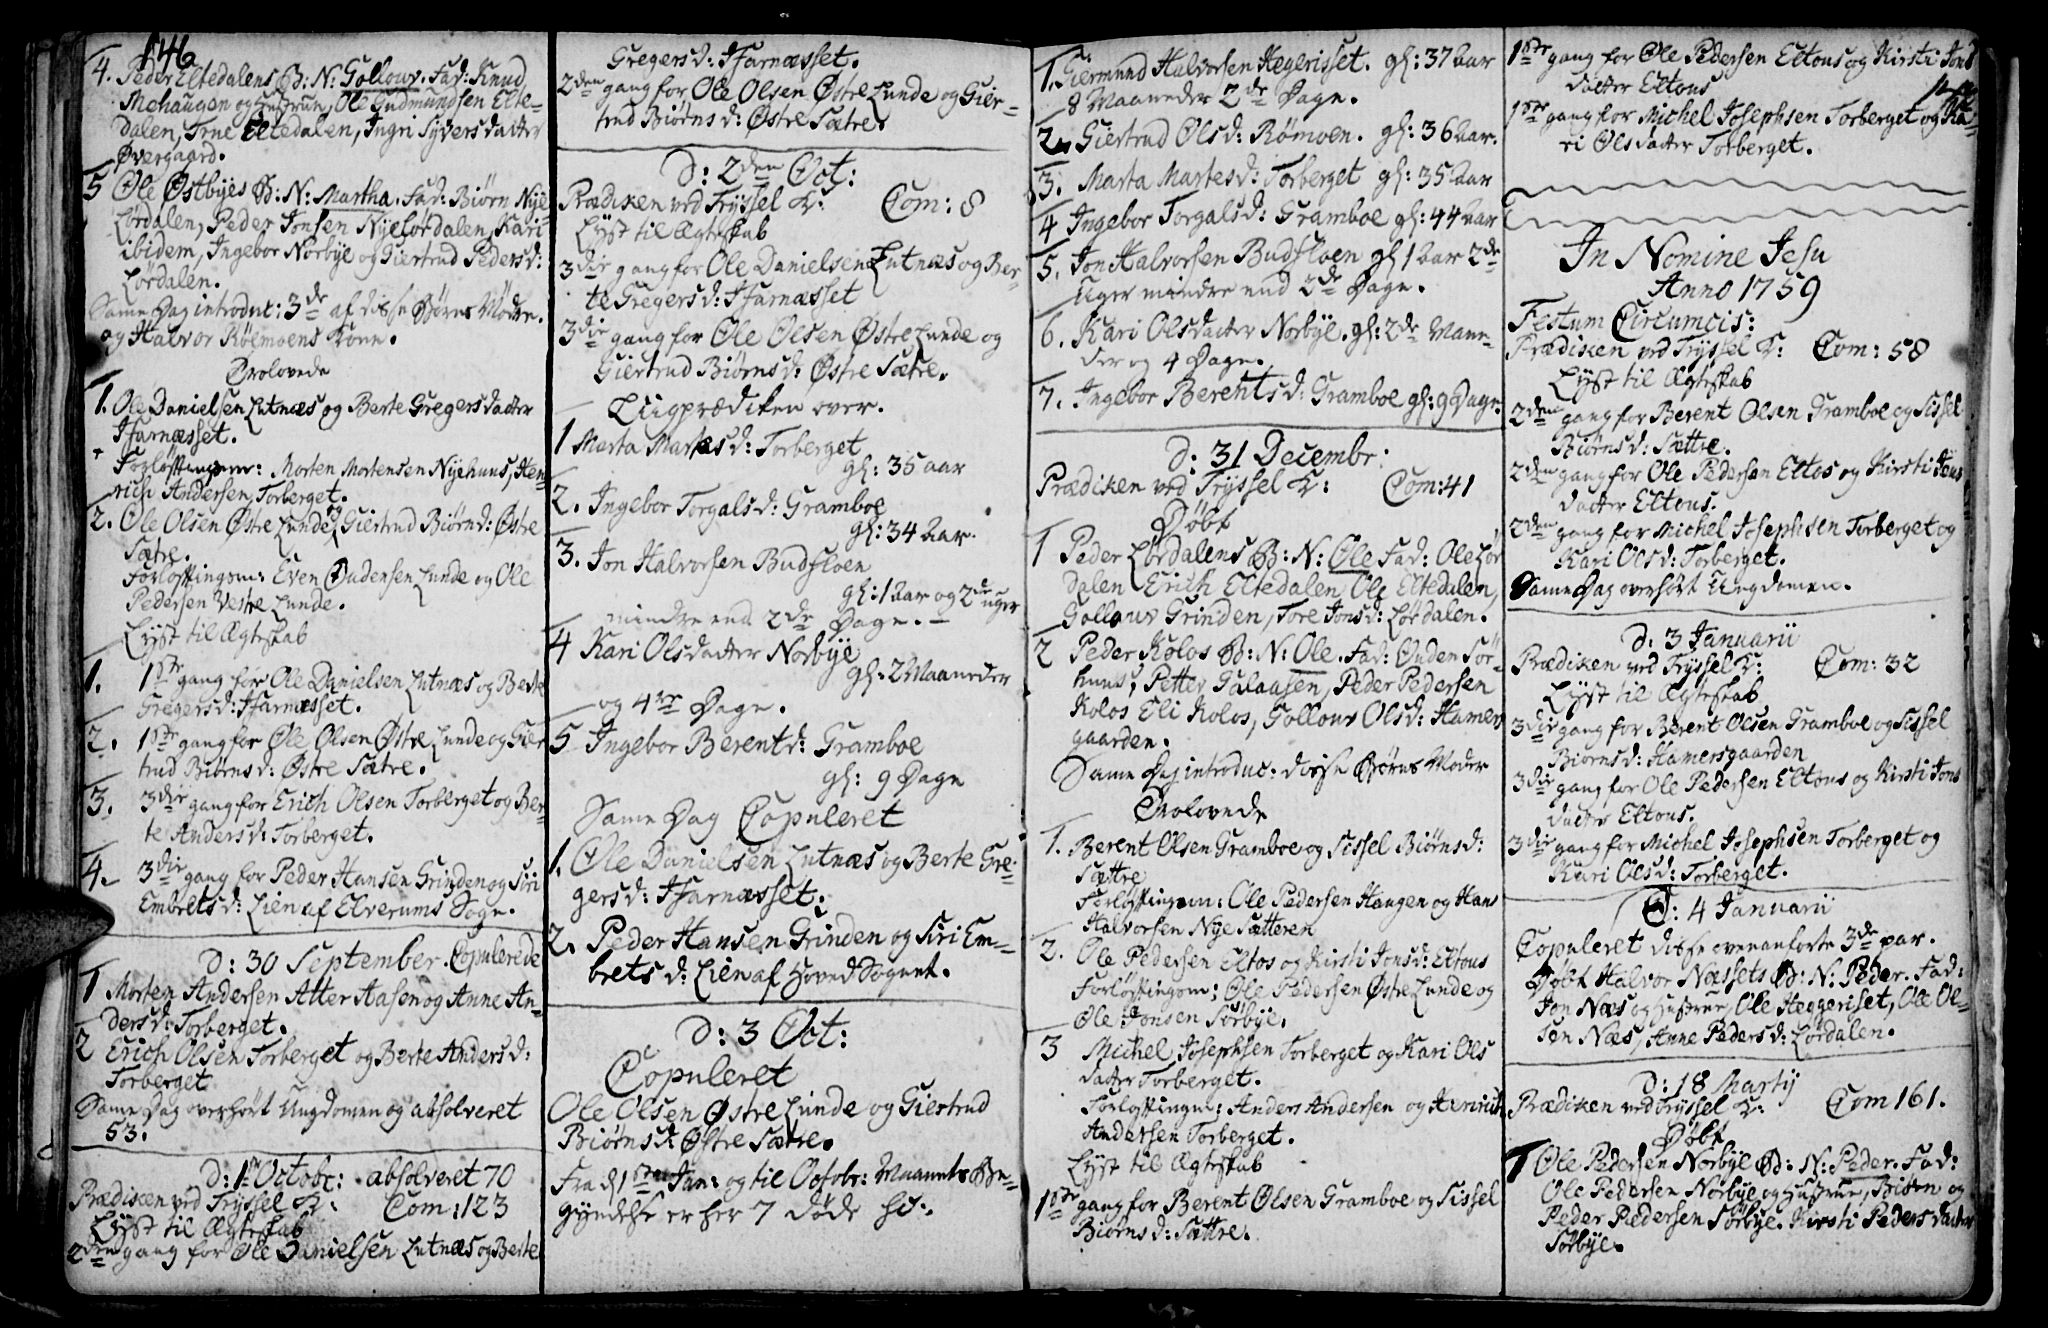 146
4. Peder Eltedalens B: N: Gollouv. Fad: Knud
Mehaugen og Hustrue, Ole Gudmundsen Elte-
dalen, Trne Eltedalen, Ingri Syversdatter
Øvergaard.
5 Ole Østbyes B: N: Martha. Fad: Biørn Nye
Lørdalen, Peder Jonsen Nyelørdalen, Kari
ibidem, Ingebor Norbye og Giertrud Pedersd:
Lørdalen.
Same Dag introduc: 3de af disse Børns Mødre.
og Halvor Rølmoens Kone.
Trolovede
1. Ole Danielsen Lutnæs og Berte Gregersdatter
Jfarnæsset.
Forløftingsm: Morten Mortensen Nyehuus, Hen-
rich Andersen Torberget.
2. Ole Olsen Østre Lunde og Giertrud Biørnd: Østre
Sætre.
Forløftingsm: Even Audensen Lunde og Ole
Pedersen Vestre Lunde.
Lyst til Ægteskab
1. 1ste gang for Ole Danielsen Lutnæs og Berte
Gregersd: Jfarnæsset.
2. 1ste gang for Ole Olsen Østre Lunde og Gier
trud Biørnsd: Østre Sætre.
3. 3die gang for Erich Olsen Torberget og Ber-
te Andersd: Torberget.
4. 3die gang for Peder Hansen Grinden og Siri
Embretsd: Lien af Elverums Sogn.
D: 30 September. Copulerede
1 Morten Andersen Atter Aasen og Anne An-
dersd: Torberget.
2 Erich Olsen Torberget og Berte Andersd:
Torberget
Same Dag overhørt Ungdomen og absolveret
53.
D: 1ste Octobr: absolveret 70
Prædiken ved Tryssel K: Com: 123
Lyst til Ægteskab
2den gang for Ole Danielsen Lutnæs og Berte
Gregersd: Jfarnæsset.
2den gang for Ole Olsen Østre Lunde og Gier-
trud Biørnsd: Østre Sætre.
D: 2den Oct:
Prædiken ved Tryssel K: Com: 8
Lyst til Ægteskab
3die gang for Ole Danielsen Lutnæs og Ber-
te Gregersd: Jfarnæsset
3die gang for Ole Olsen Østre Lunde og
Giertrud Biørnsd: Østre Sætre.
Liigprædiken over.
1 Marta Martesd: Torberget
gl: 35 aar
2. Ingebor Torgalsd: Gramboe
gl: 34 Aar.
3. Jon Halvorsen Budfloen
gl: 1 Aar og 2de uger
mindre end 2de Dage.
4 Kari Olsdatter Norbye
gl. 2 Maaneder
og 4re Dage.
5 Ingebor Berentd: Gramboe
gl: 9 Dage
Same Dag Copuleret
1. Ole Danielsen Lutnæs og Berte Gre-
gersd: Jfarnæsset.
2. Peder Hansen Grinden og Siri Em-
brets d: Lien af Hoved Sognet.
D: 3 Oct:
Copuleret
Ole Olsen Østre Lunde og Giertrud
Biørnsd: Østre Sætre.
Fra d 1ste Jan: og til Octobr: Maaneds Be-
gyndelse er her 7 døde
1. Giermund Halvorsen Hegerisset. gl: 37 Aar
8 Maaneder 2de Dage.
2. Giertrud Olsd: Rømoen. gl: 36 Aar.
3. Marta Martesd: Torberget gl: 35 Aar
4 Ingebor Torgalsd: Gramboe gl: 44 Aar
5. Jon Halvorsen Budfloen gl 1 Aar 2de
Uger mindre end 2de Dage.
6. Kari Olsdatter Norbye. gl: 2de Maane-
der og 4 Dage.
7. Ingebor Berentsd: Gramboe gl: 9 Dage.
D: 31 Decembr:
Prædiken ved Tryssel K: Com: 41
Døbt
1 Peder Lørdalens B: N: Ole Fad: Ole Lør
dalen Erich Eltedalen, Ole Eltedalen,
Gollouv Grinden, Tore Jonsd: Lørdalen.
2 Peder Kolos B: N: Ole. Fad: Auden Sør-
huus, Petter Galaasen, Peder Pedersen
Kolos Eli Kolos, Gollouv Olsd: Hamers
gaarden.
Same Dag introduc: disse Børns Moder
Trolovede
1. Berent Olsen Gramboe og Sissel Biørnsd:
Sættre
Forløftingsm: Ole Pedersen Haugen og Hans
Halvorsen Nye Sætteren
2. Ole Pedersen Eltos og Kirsti Jonsd: Eltous
Forløftingsm: Ole Pedersen Østre Lunde og
Ole Jonsen Sørbye.
3 Michel Josephsen Torberget og Kari Ols
datter Torberget.
Forløftingm: Anders Andersen og Henrich
Andersen Torberget.
Lyst til Ægteskab
1ste gang for Berent Olsen Gramboe og Sissel
Biørnsd: Sættre.
1ste gang for Ole Pedersen Eltous og Kirsti Jons
datter Eltous
1ste gang for Michel Josephsen Torberget og Ka-
ri Olsdatter Torberget.
In Nomine Jesu
Anno 1759
Festum Circumcis:
Prædiken ved Tryssel K: Com: 58
Lyst til Ægteskab
2den gang for Berent Olsen Gramboe og Sissel
Biørnsd: Sættre.
2den gang for Ole Pedersen Eltos og Kirsti Jons
datter Eltous.
2den gang for Michel Josephsen Torberget og
Kari Olsd: Torberget.
Same Dag overhørt Ungdomen.
D: 3 Januarii
Prædiken ved Tryssel K: Com: 32
Lyst til Ægteskab
3die gang for Berent Olsen Gramboe og Sissel
Biørnsd: Hamersgaarden
3die gang for Ole Pedersen Eltous og Kirsti Jons
datter Eltous.
3die gang for Michel Josephsen Torberget og
Kari Olsd: Torberget.
D: 4 Januarii
Copuleret disse ovenanførte 3de par.
Døbt Halvor Næssets B: N: Peder. Fad:
Jon Næs og Hustrue, Ole Heggeriset, Ole Ol-
sen Næs, Anne Pedersd: Lørdalen.
D: 18 Martij
Prædiken ved Tryssel K: Com 161.
Døbt
1 Ole Pedersen Norbye B: N: Peder. Fad:
Ole Pedersen Norbye og Hustrue, Bitten og
Peder Pedersen Sørbye. Kirsti Pedersdatter
Sørbye.